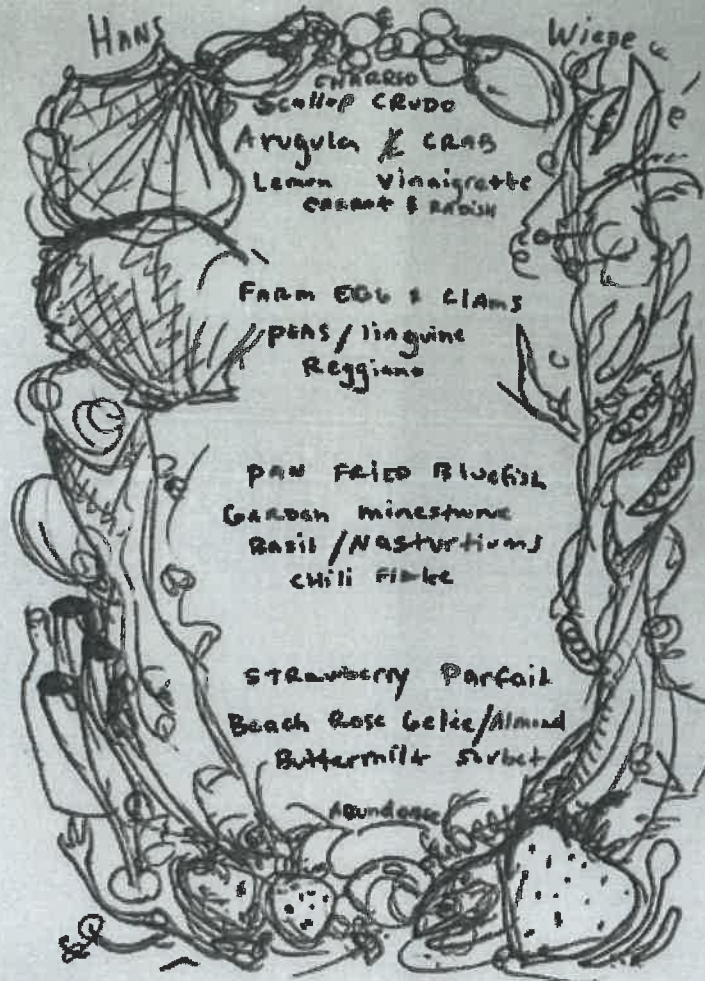 HANS
Wiene
Scallop CRUDO
Arugula & CRAB
Lemon Vinaigrette
CARROT & RADISH
FARM EGG & ClAms
PEAS/linguine
Reggiano
PAN FRIED Bluefish
GARDEN minestrone
BASil/Nasturtiums
CHili Flake
STRawberry Parfait
Beach Rose Gelée/Almond
Buttermilk Sorbet
Abundance